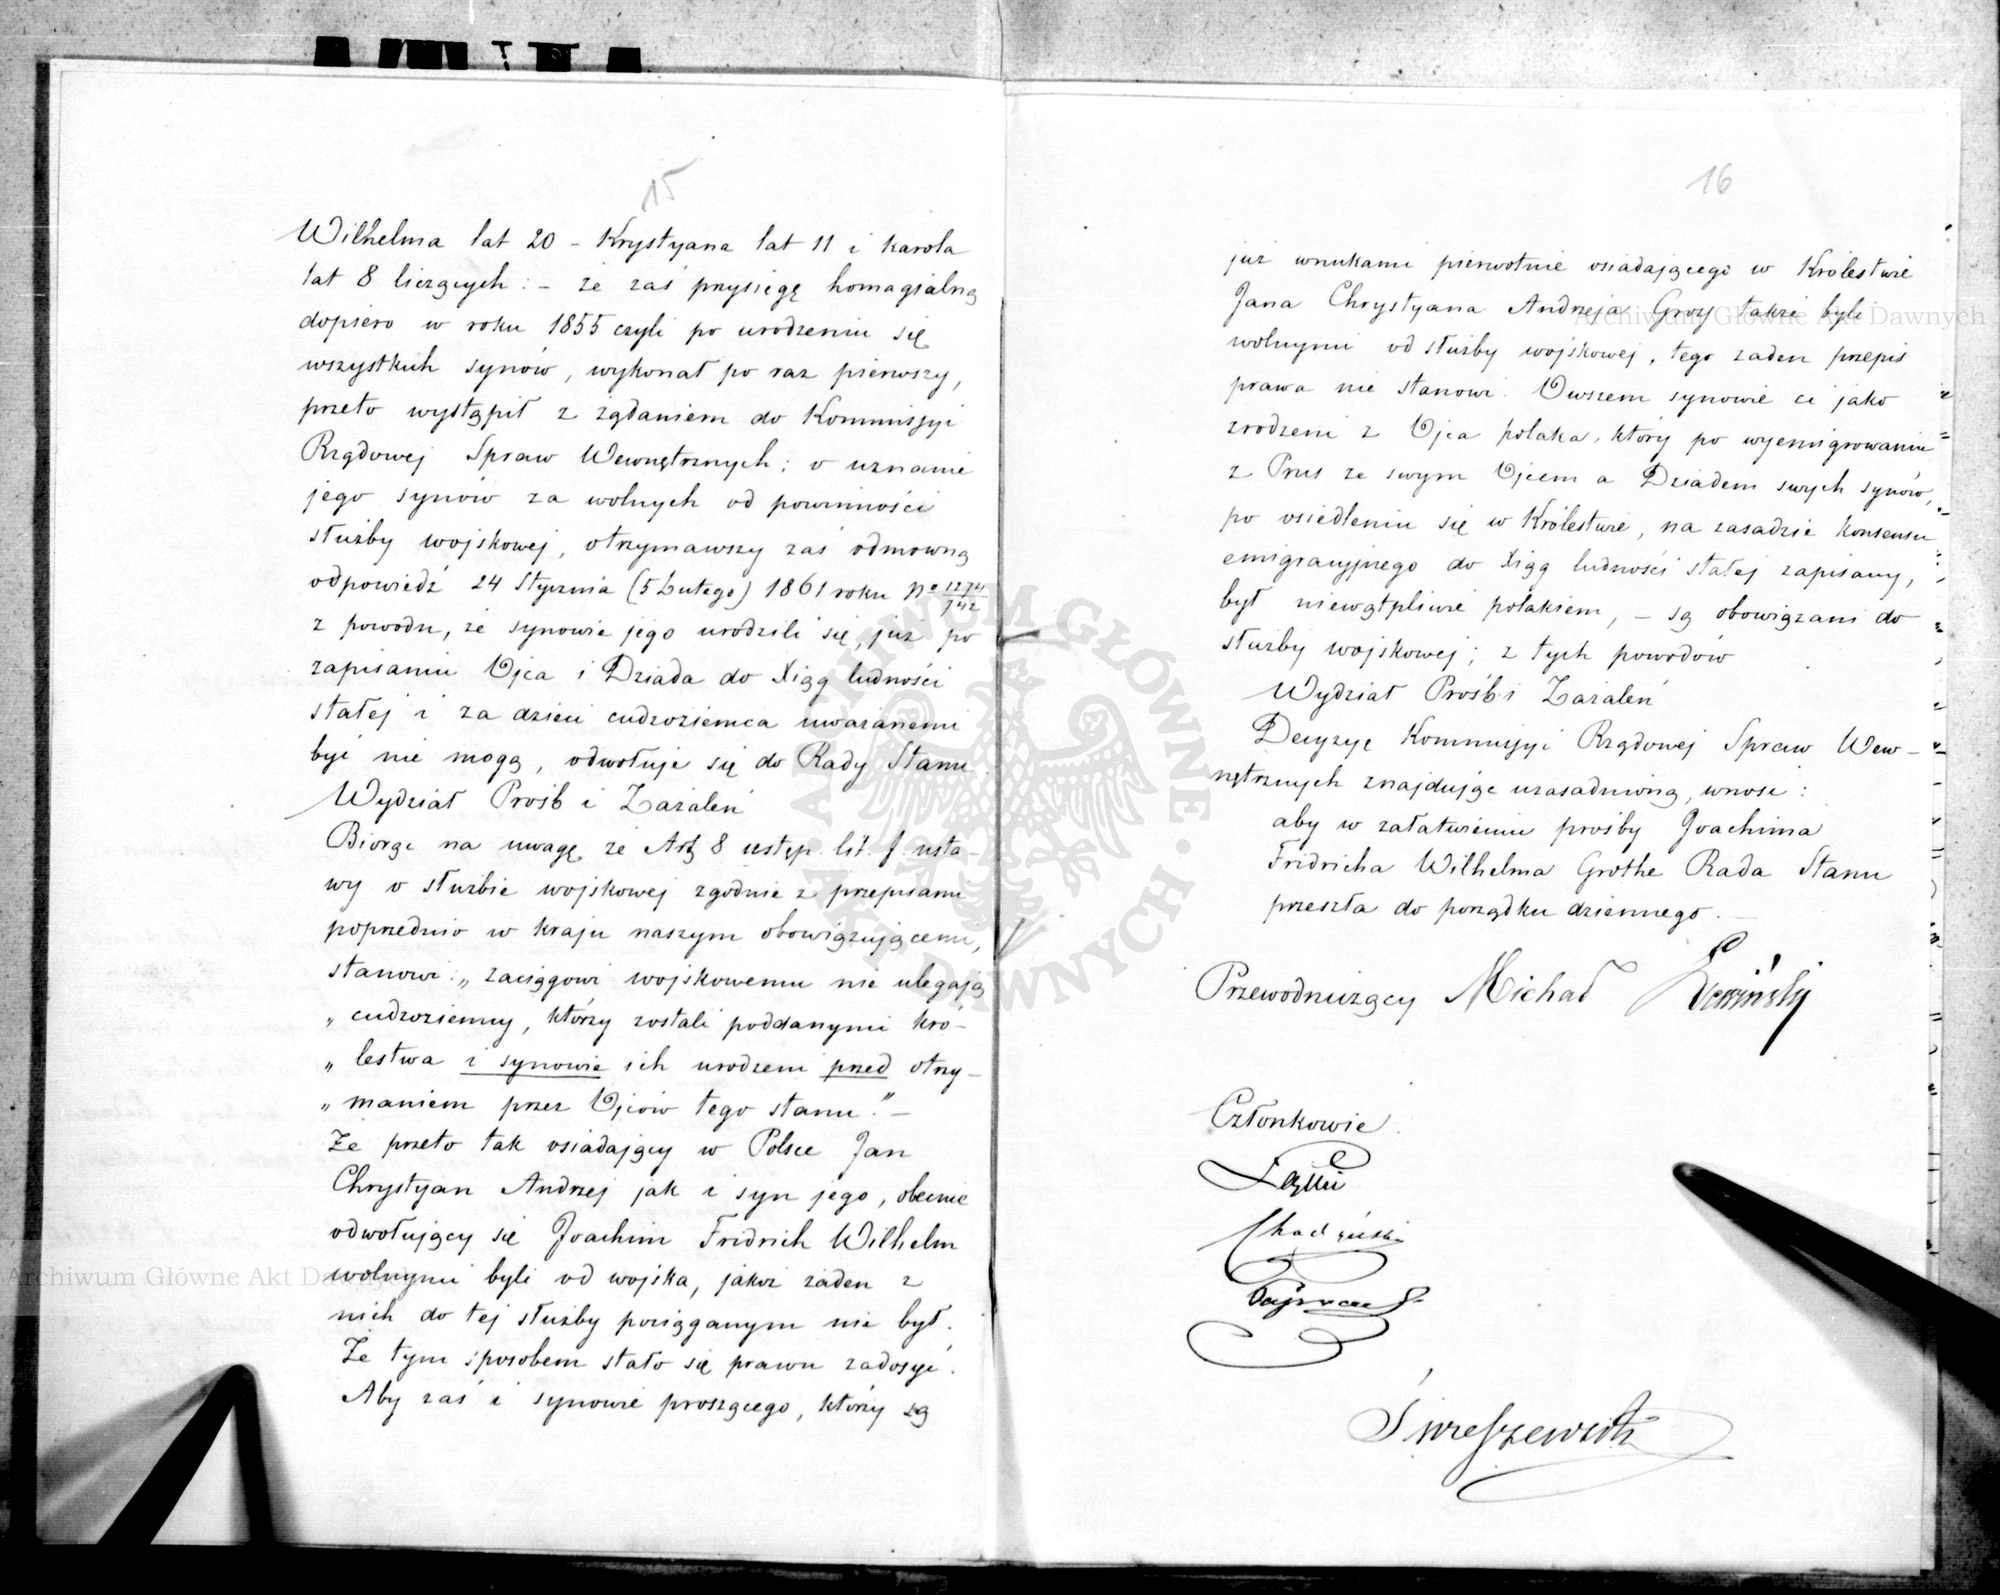 15
Wilhelma lat 20 – Krystyana lat 11 i Karola
lat 8 liczących: – że zaś przysięgę homagialną
dopiero w roku 1855 czyli po urodzeniu się
wszystkich synów, wykonał po raz pierwszy,
przeto wystąpił z żądaniem do Kommissyi
Rządowej Spraw Wewnętrznych; o uznanie
jego synów za wolnych od powinności
służby wojskowej, otrzymawszy zaś odmowną
odpowiedź 24 Stycznia (5 Lutego) 1861 roku No 1274/742
z powodu, że synowie jego urodzili się, już po
zapisaniu Ojca i Dziada do Xiąg ludności
stałej i za dzieci cudzoziemca uważanemi
być nie mogą, odwołuje się do Rady Stanu
Wydział Próśb i Zażaleń
Biorąc na uwagę że Art 8 ustęp. lit. f. usta-
wy o służbie wojskowej zgodnie z przepisami
poprzednio w kraju naszym obowiązującemi,
stanowi: „zaciągowi wojskowemu nie ulegają
„cudzoziemcy, którzy zostali poddanymi Kró-
„lestwa i synowie ich urodzeni przed otrzy-
„maniem przez Ojców tego stanu." –
Że przeto tak osiadający w Polsce Jan
Chrystyan Andrzej jak i syn jego, obecnie
odwołujący się Joachim Fridrich Wilhelm
wolnymi byli od wojska, jakoż żaden z
nich do tej służby pociąganym nie był.
Że tym sposobem stało się prawu zadosyć.
Aby zaś i synowie proszącego, którzy są
16
już wnukami pierwotnie osiadającego w Królestwie
Jana Chrystyana Andrzeja Grozy także byli
wolnymi od służby wojskowej, tego żaden przepis
prawa nie stanowi. Owszem synowie ci jako
zrodzeni z Ojca polaka, który po wyemigrowaniu
z Prus ze swym Ojcem a Dziadem swych synów,
po osiedleniu się w Królestwie, na zasadzie konsensu
emigracyjnego do Xiąg ludności stałej zapisany,
był niewątpliwie polakiem, – są obowiązani do
służby wojskowej; z tych powodów
Wydział Próśb i Zażaleń
Decyzyę Kommissyi Rządowej Spraw Wew-
nętrznych znajdując uzasadnioną, wnosi:
aby w załatwieniu prośby Joachima
Fridricha Wilhelma Grothe Rada Stanu
przeszła do porządku dziennego. –
Przewodniczący Michał
Członkowie
Archiwum Główne Akt Dawnych
Archiwum Główne Akt Dawnych
ARCHIWUM GŁÓWNE AKT DAWNYCH